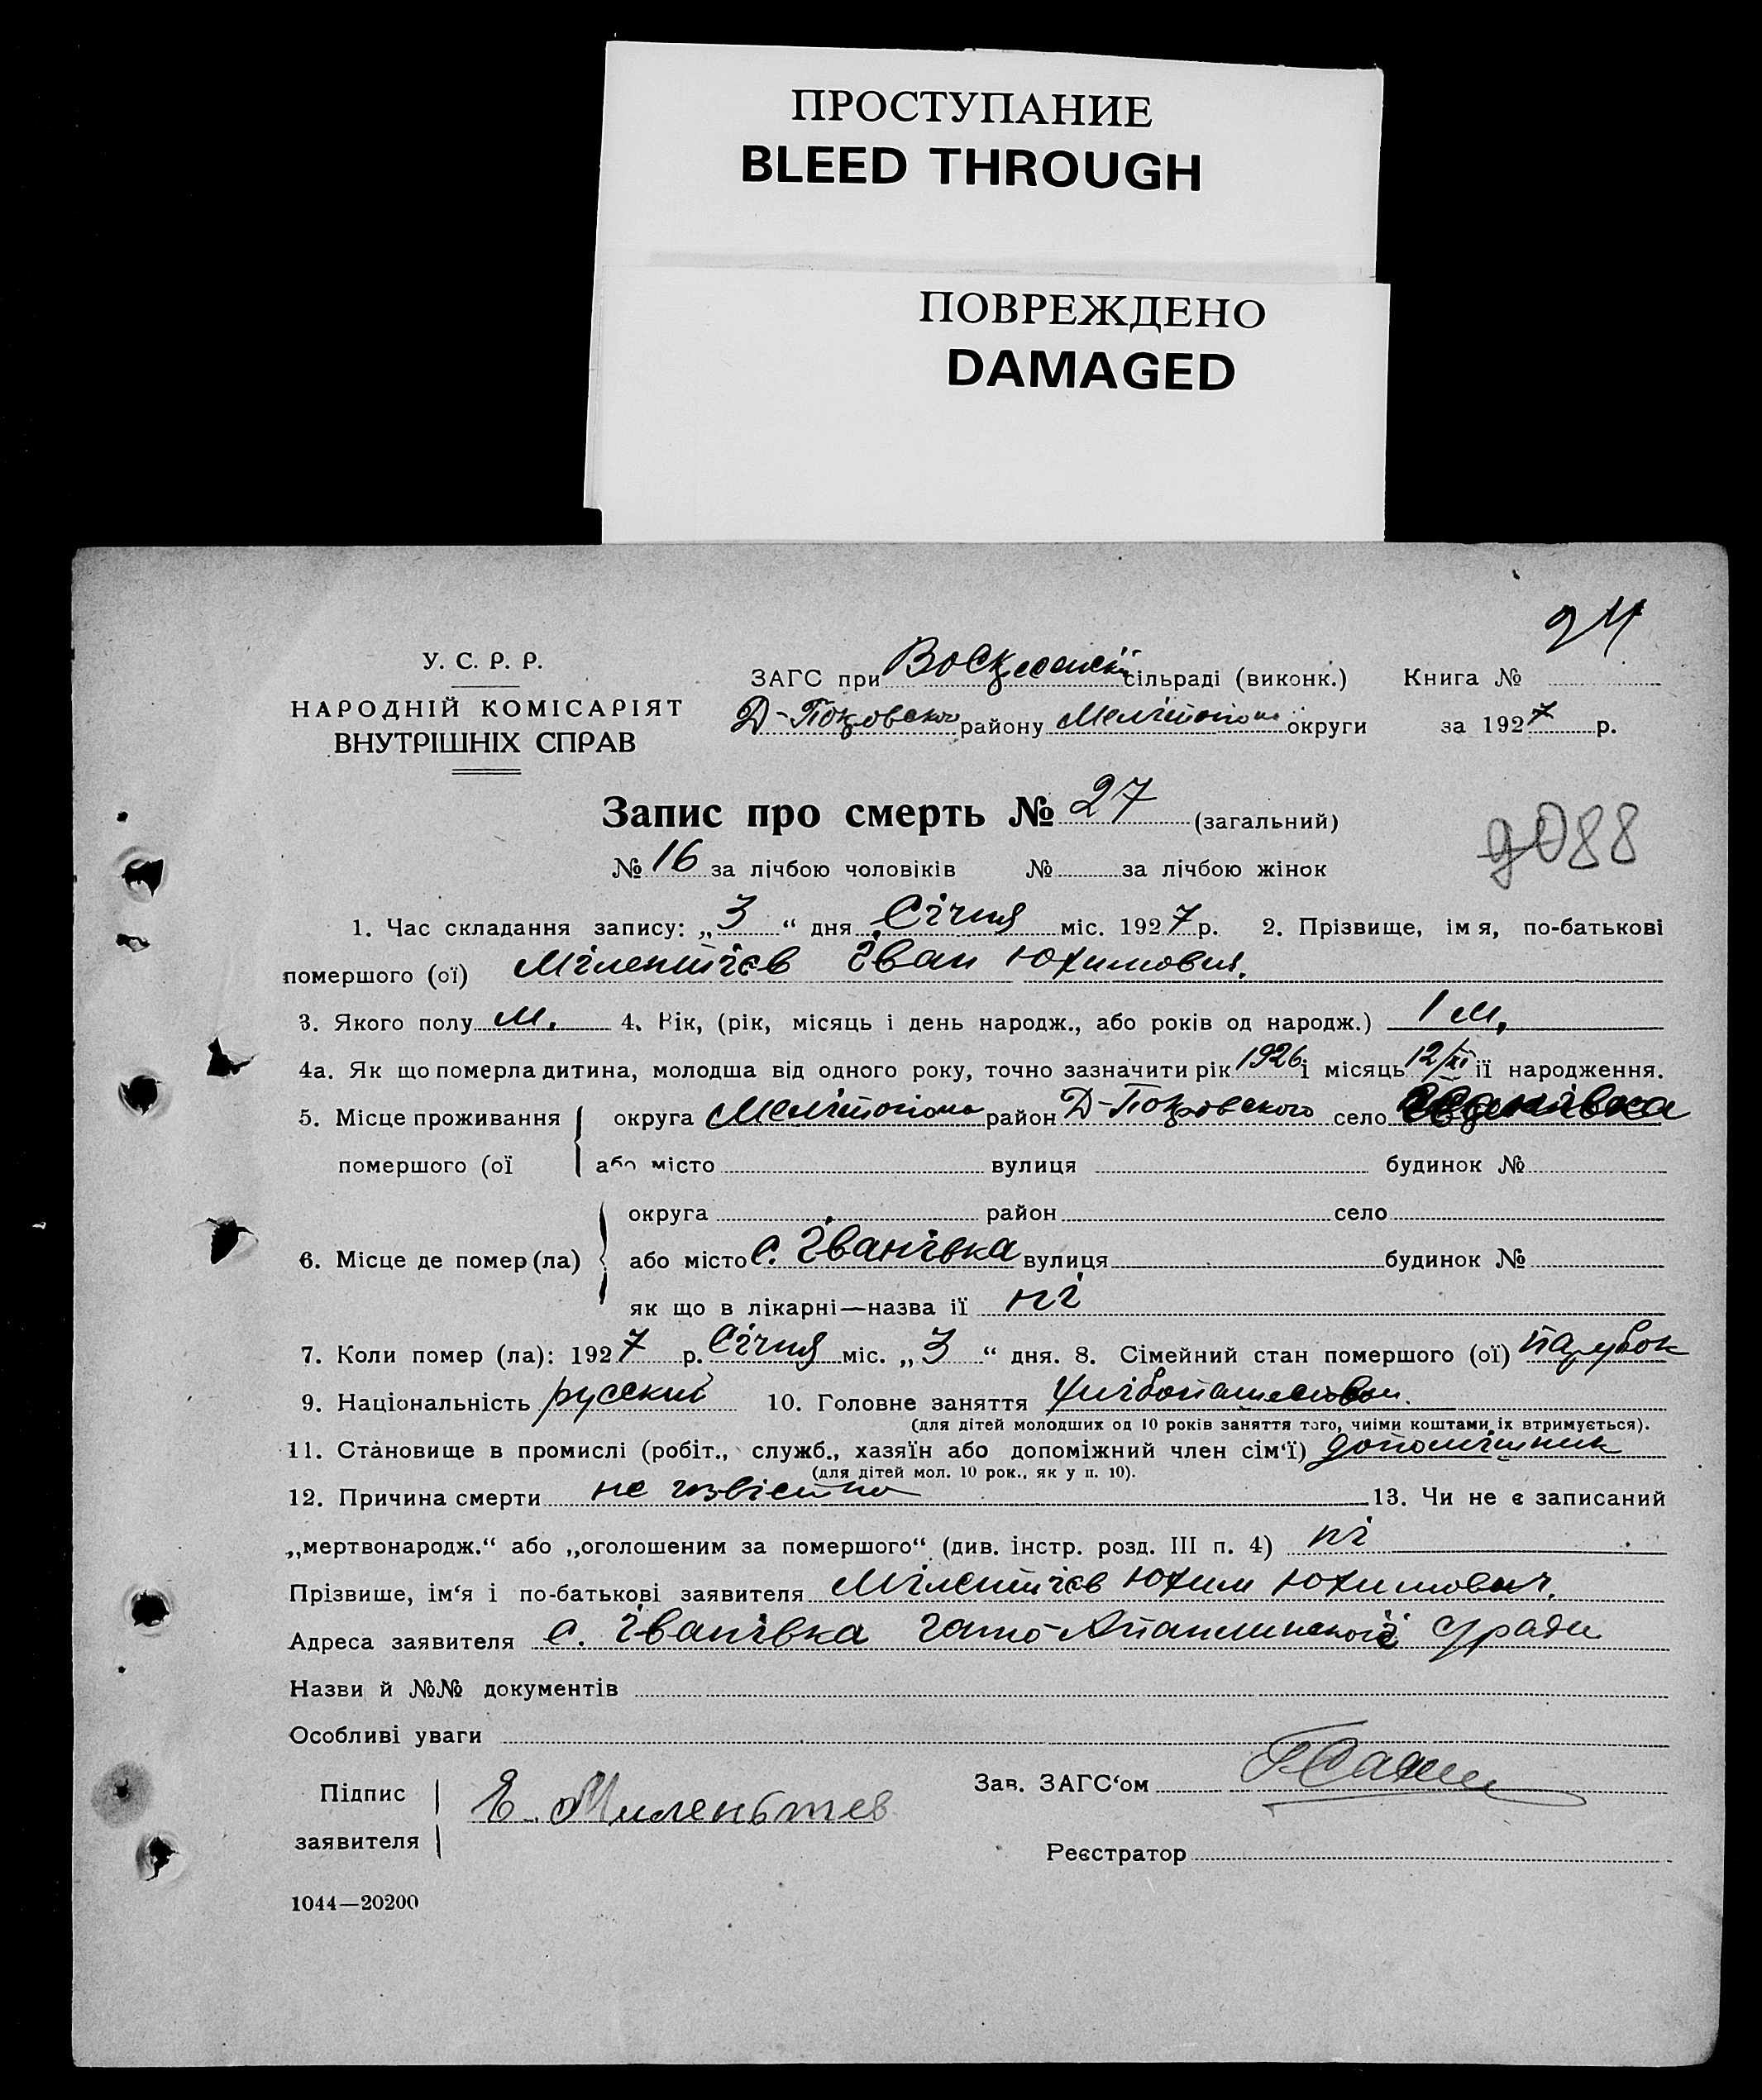 ПРОСТУПАНИЕ
BLEED THROUGH
ПОВРЕЖДЕНО
DAMAGED
24
У. С. Р. Р.
НАРОДНІЙ КОМІСАРІЯТ
ВНУТРІШНІХ СПРАВ
ЗАГС при сільраді (виконк.) Книга №
Д-Покровского району Мелітопіль округи за 1927 р.
Запис про смерть № 27 (загальний)
№ 16 за лічбою чоловіків № за лічбою жінок
9088
1. Час складання запису: „3“ дня Січня міс. 1927 р. 2. Прізвище, імя, по-батькові
помершого (ої) Мілентієв Іван Юхимович.
3. Якого полу М. 4. Вік, (рік, місяць і день народж., або років од народж.) 1 м.
4а. Як що померла дитина, молодша від одного року, точно зазначити рік 1926 і місяць 12/XI ії народження.
5. Місце проживання округа район Д-Покровского село
помершого (ої або місто вулиця будинок №
округа район село
6. Місце де помер (ла) або місто с. Іванівка вулиця будинок №
як що в лікарні—назва ії ні
7. Коли помер (ла): 1927 р. Січня міс. „3“ дня. 8. Сімейний стан помершого (ої) парубок
9. Національність русский 10. Головне заняття
(для дітей молодших од 10 років заняття того, чиїми коштами їх втримується).
11. Становище в промислі (робіт., служб., хазяїн або допоміжний член сім‘ї) допомішник
(для дітей мол. 10 рок., як у п. 10).
12. Причина смерти не ізвістно 13. Чи не є записаний
„мертвонародж.“ або „оголошеним за помершого“ (див. інстр. розд. III п. 4) ні
Прізвише, ім‘я і по-батькові заявителя Мілентієв Юхим Юхимович.
Адреса заявителя с. Іванівка с/ради
Назви й №№ документів
Особливі уваги
Підпис
заявителя
Е. Миленьтев
Зав. ЗАГС‘ом
Реєстратор
1044—20200